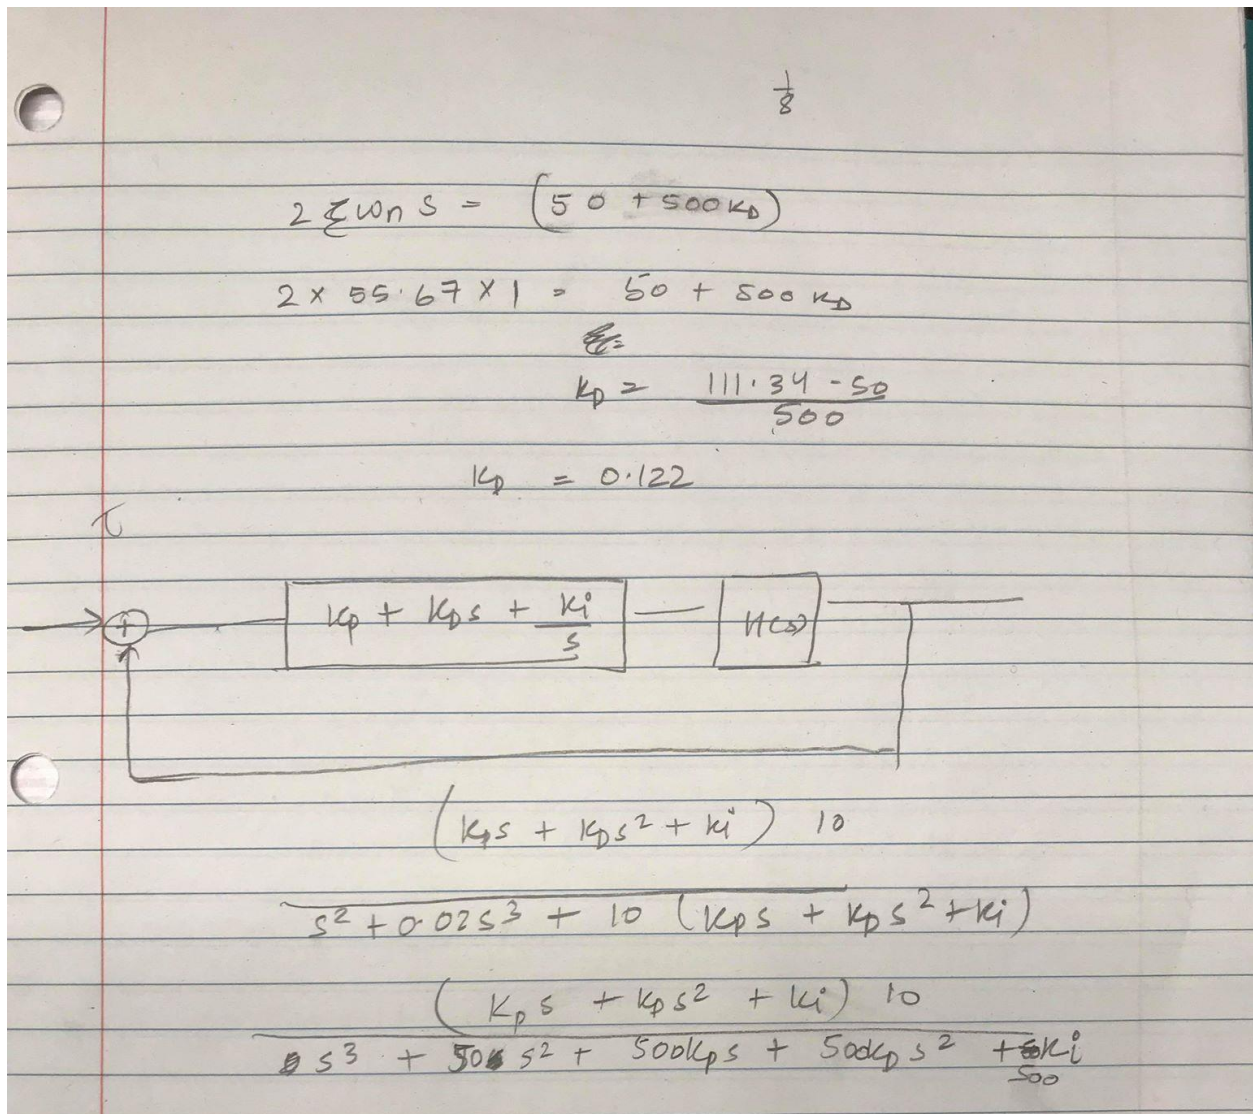 1/8
2 ξ ωn s = (50 + 500 KD)
2 × 55.67 × 1 = 50 + 500 KD
KD = (111.34 - 50) / 500
KD = 0.122
τ
+ Kp + KDs + Ki/s H(s)
(Kps + KDs² + Ki) 10
s² + 0.02s³ + 10 (Kps + KDs² + Ki)
(Kps + KDs² + Ki) 10
s³ + 50 s² + 500Kps + 500KDs² + 500 Ki